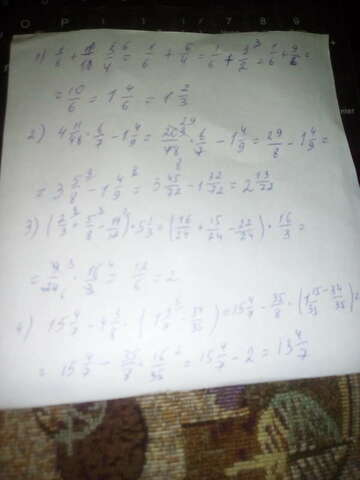 1) 1/6 + 18/10 · 5/4 = 1/6 + 6/4 = 1/6 + 3/2 = 1/6 + 9/6 =
= 10/6 = 1 4/6 = 1 2/3
2) 4 11/48 · 6/7 - 1 4/9 = 29/8 - 1 4/9 =
= 3 5/8 - 1 4/9 = 3 45/72 - 1 32/72 = 2 13/72
3) (2/3 + 5/8 - 11/12) · 5 1/3 = (16/24 + 15/24 - 22/24) · 16/3 =
= 9/24 · 16/3 = 12/6 = 2
4) 15 4/7 - 4 3/8 · = 15 4/7 - 35/8 ·
= 15 4/7 - 35/8 · 16/35 = 15 4/7 - 2 = 13 4/7